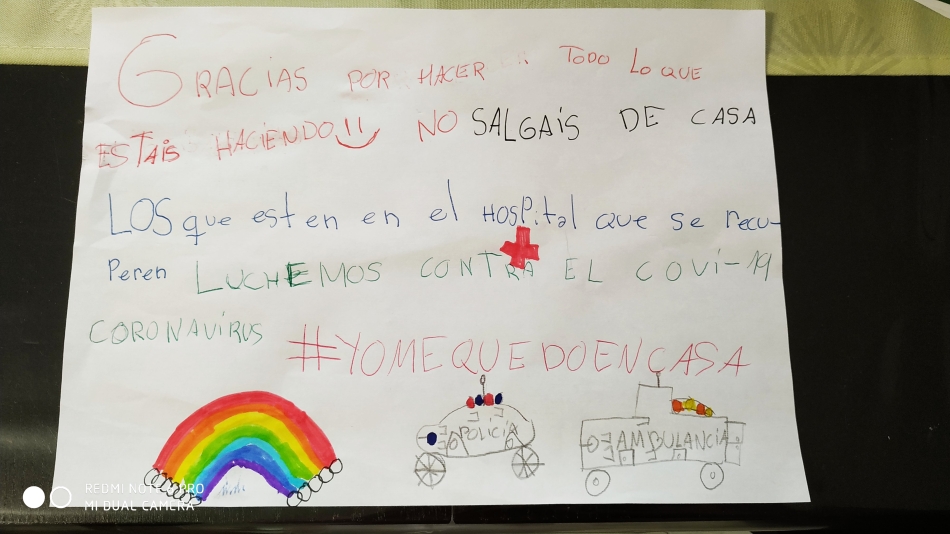 GRACIAS POR HACER TODO LO QUE
ESTAIS HACIENDO!! NO SALGAIS DE CASA
LOS que esten en el HOSPital que se recu-
Peren LUCHEMOS CONTRA EL COVI-19
CORONAVIRUS
#YOMEQUEDOENCASA
POLICIA
AMBULANCIA
REDMI NOTE 8 PRO
MI DUAL CAMERA